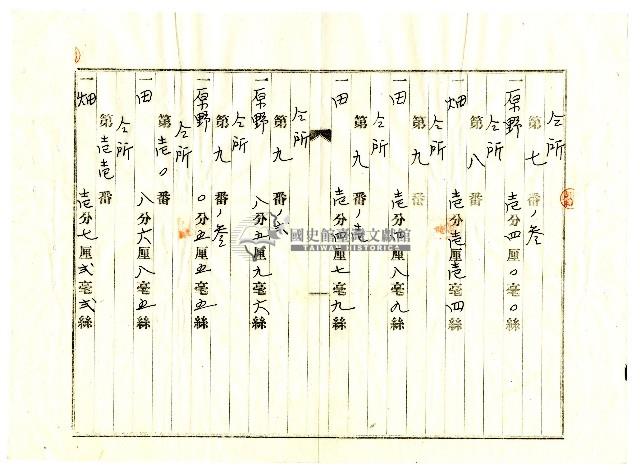 仝所
第七番ノ叁
一原野 壱分四厘〇毫〇絲
仝所
第八番
一畑 壱分壱厘壱毫四絲
仝所
第九番
一田 壱分四厘八毫九絲
仝所
第九番ノ壱
一田 壱分四厘七毫九絲
仝所
第九番ノ弍
一原野 八分五厘九毫六絲
仝所
第九番ノ叁
一原野 〇分五厘五毫五絲
仝所
第壱〇番
一田 八分六厘八毫五絲
仝所
第壱壱番
一畑 壱分七厘弍毫弍絲
國史館臺灣文獻館
TAIWAN HISTORICA